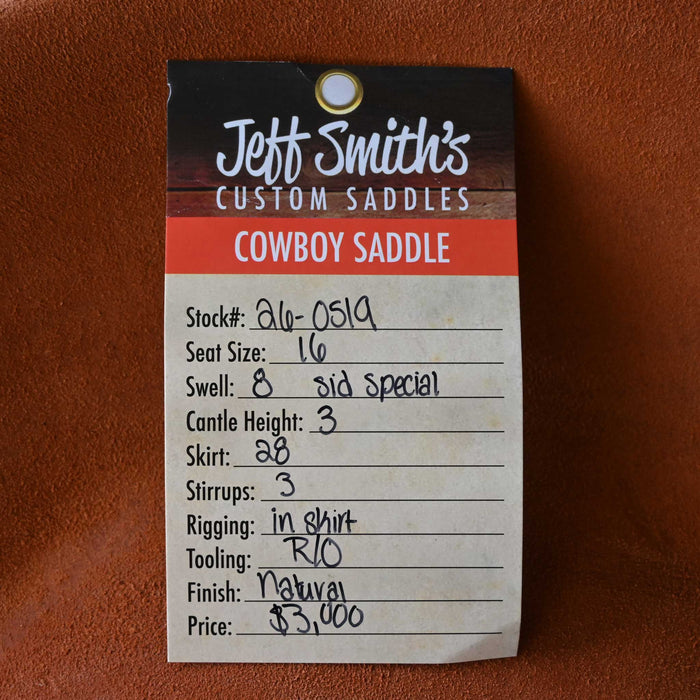 Jeff Smith's
CUSTOM SADDLES
COWBOY SADDLE
Stock#: 26-0519
Seat Size: 16
Swell: 8 sid special
Cantle Height: 3
Skirt: 28
Stirrups: 3
Rigging: in skirt
Tooling: R/O
Finish: Natural
Price: $3,000